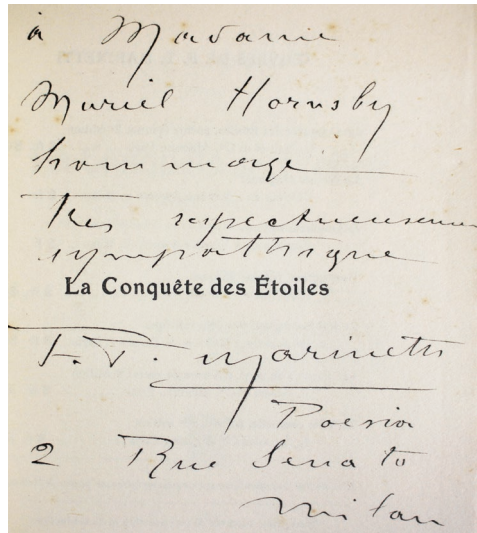 à Madame
Muriel Hornsby
hommage
très respectueusement
sympathique
La Conquête des Étoiles
F. T. Marinetti
Poesia
2 Rue Senato
Milan